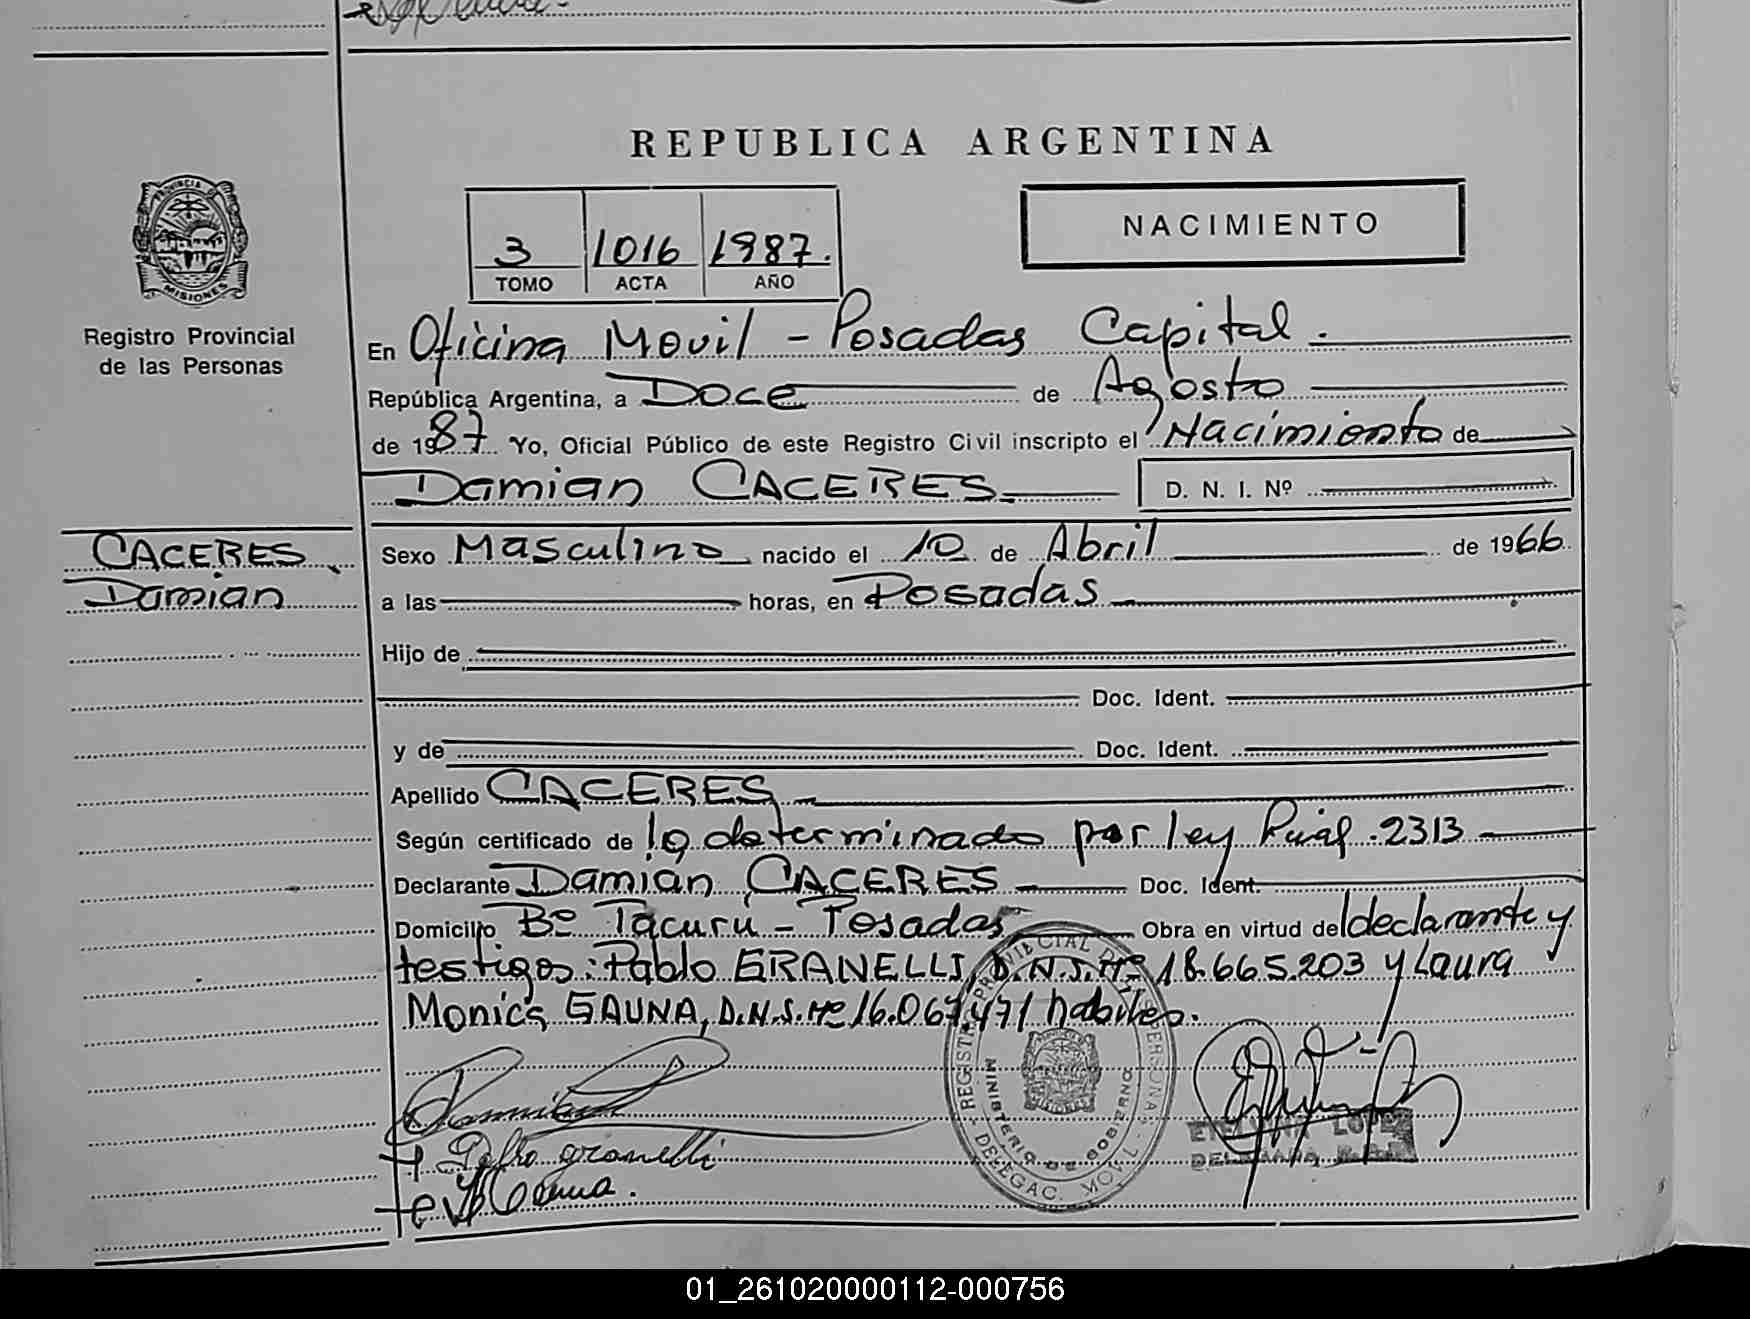 REPUBLICA ARGENTINA
PROVINCIA DE
MISIONES
Registro Provincial
de las Personas
3 1016 1987.
TOMO ACTA AÑO
NACIMIENTO
En Oficina Movil - Posadas Capital.
República Argentina, a Doce de Agosto
de 1987 Yo, Oficial Público de este Registro Civil inscripto el Nacimiento de
Damian CACERES D. N. I. Nº
CACERES,
Damian
Sexo Masculino nacido el 10 de Abril de 1966
a las horas, en Posadas
Hijo de
Doc. Ident.
y de Doc. Ident.
Apellido CACERES
Según certificado de lo determinado por ley 2313
Declarante Damian CACERES Doc. Ident.
Domicilio Bº Tacurú - Posadas Obra en virtud del declarante y
testigos: Pablo GRANELLI, D.N.I. Nº 18.665.203 y Laura
Monica GAUNA, D.N.I. Nº 16.067.471 habiles.
REGISTRO PROVINCIAL DE LAS PERSONAS
MINISTERIO DE GOBIERNO
DELEGAC. MOVIL
LOPEZ
01_261020000112-000756